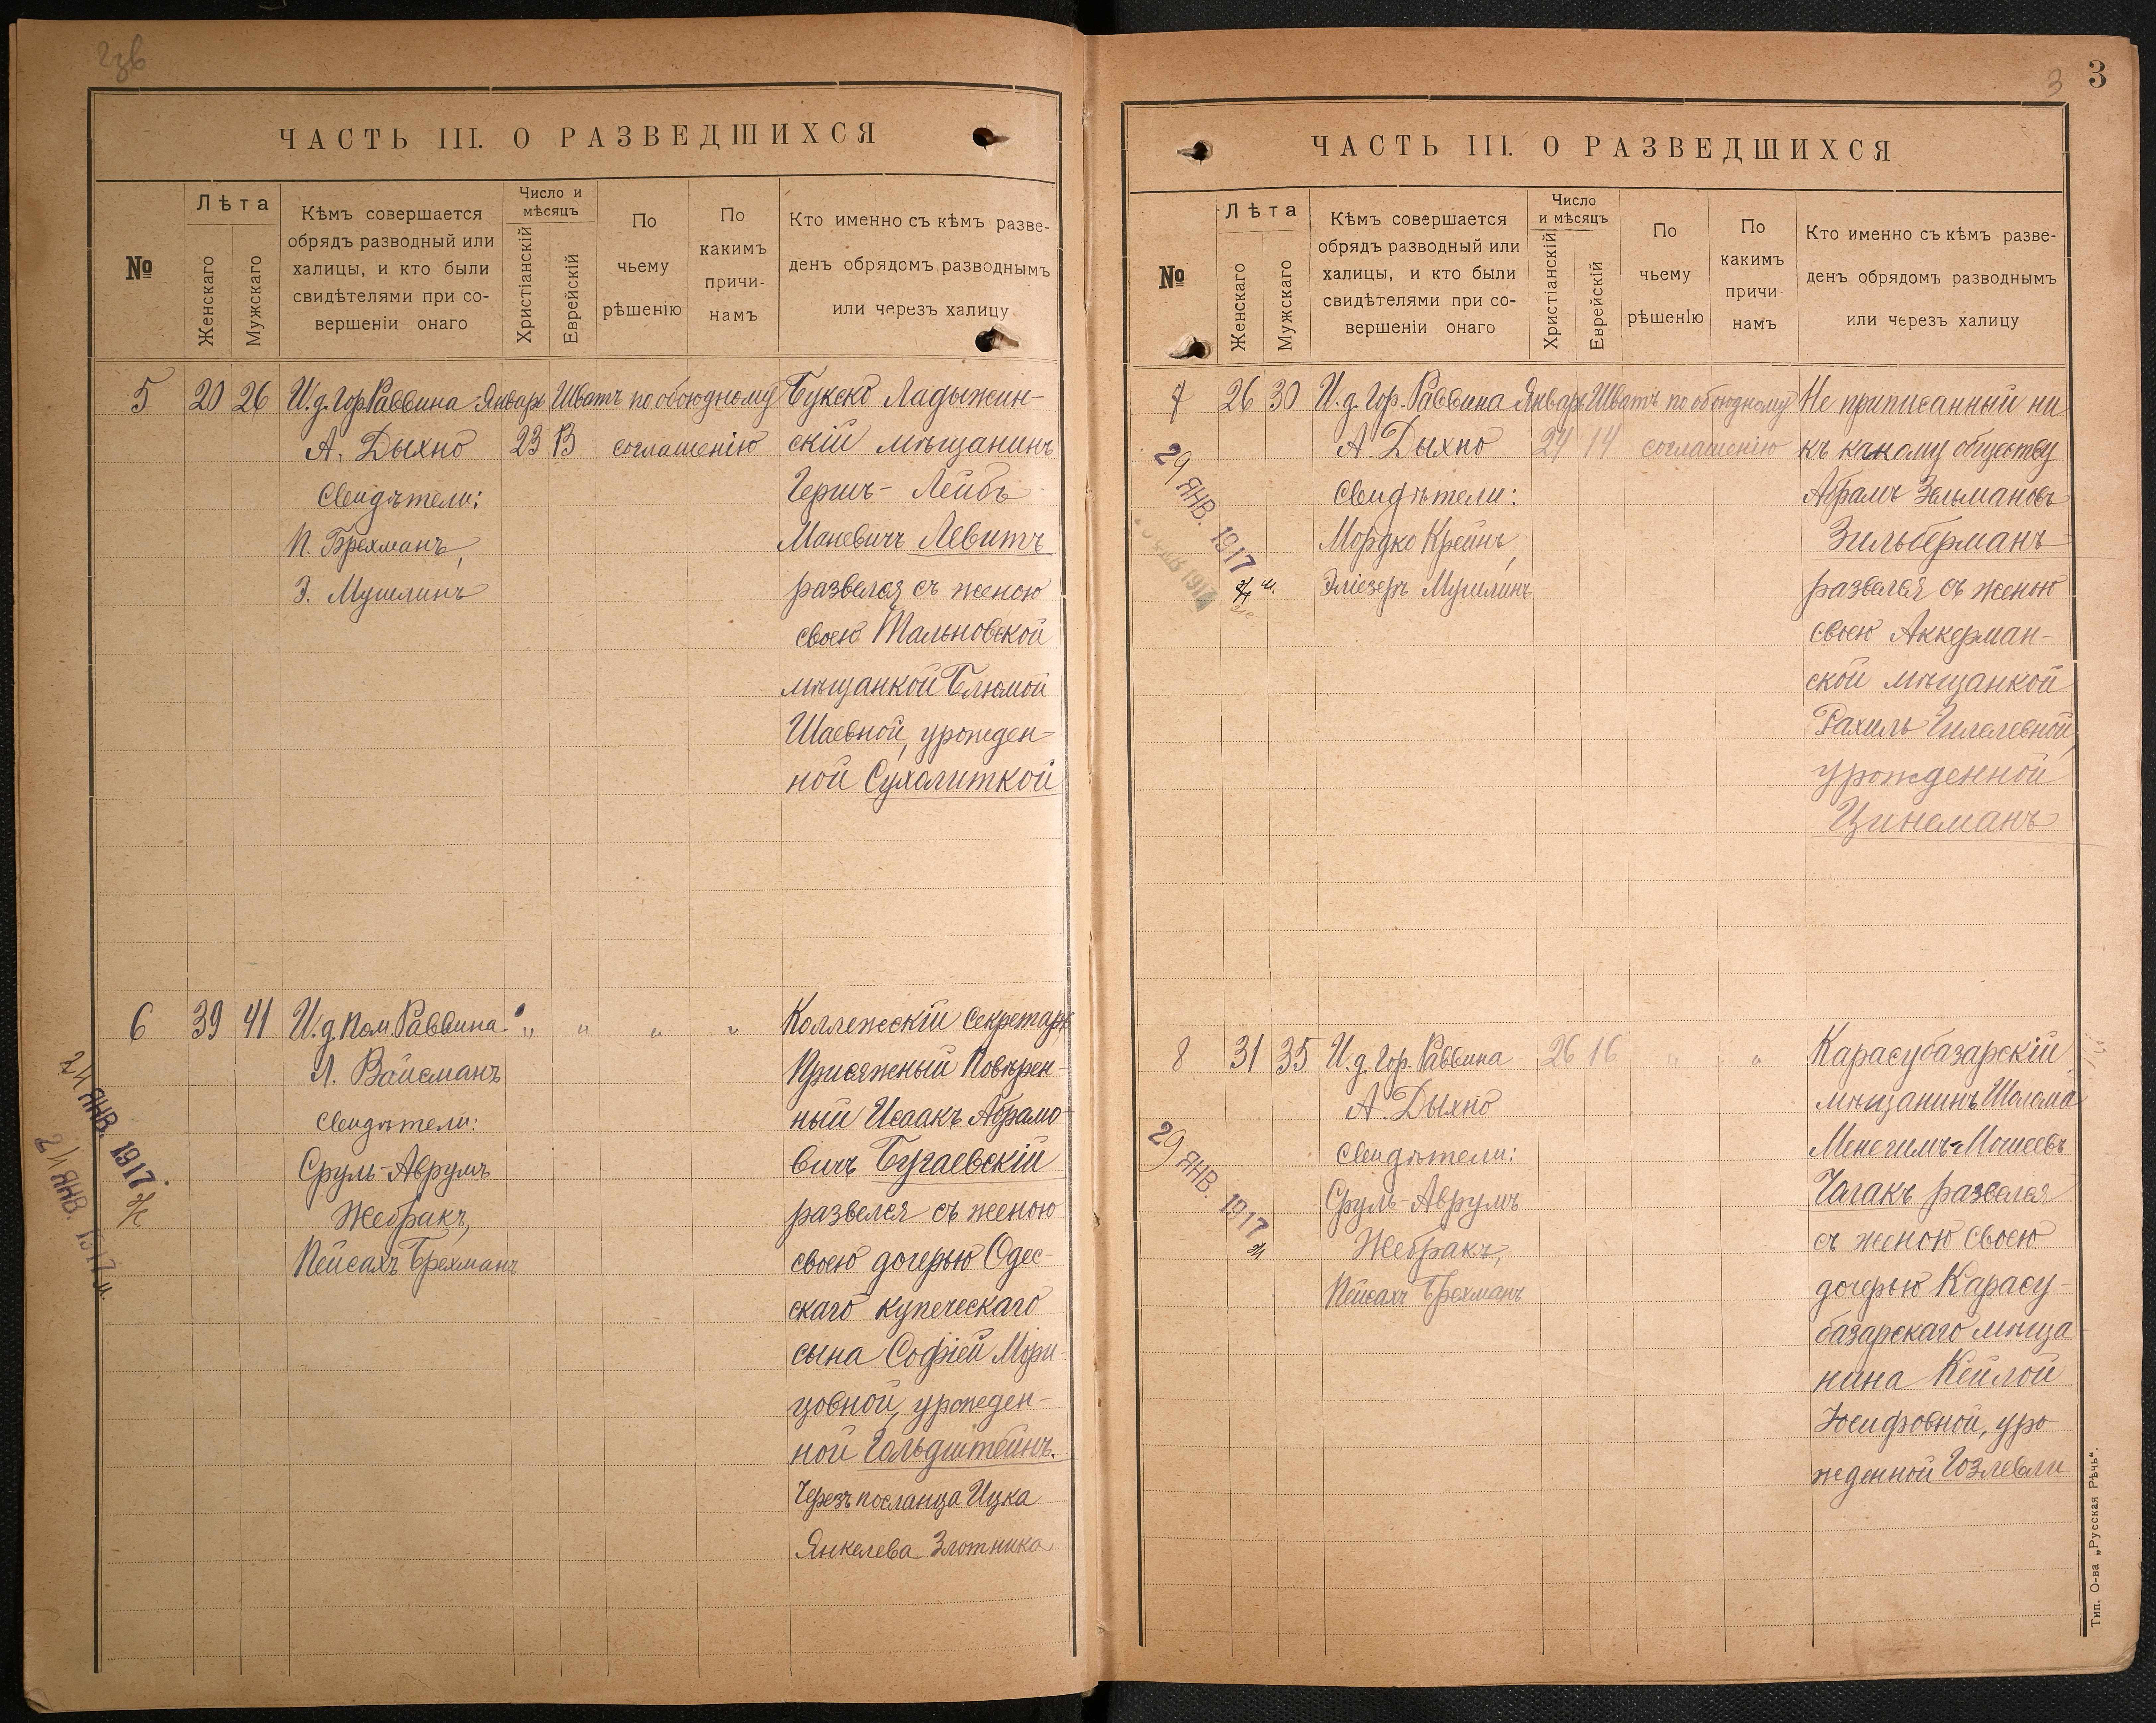 ЧАСТЬ III. О РАЗВЕДШИХСЯ
№
Лѣта
Женскаго
Мужскаго
Кѣмъ совершается
обрядъ разводный или
халицы, и кто были
свидѣтелями при со-
вершеніи онаго
Число и
мѣсяцъ
Христіанскій
Еврейскій
По
чьему
рѣшенію
По
какимъ
причи-
намъ
Кто именно съ кѣмъ разве-
денъ обрядомъ разводнымъ
или черезъ халицу
5 20 26 И.д.Гор.Раввина Январ Шватъ по обоюдному
А. Дыхно 23 13 соглашенію
Свидѣтели:
П. Брехманъ,
Э. Мушлинъ
Букско Ладыжин-
скій мѣщанинъ
Гершъ-Лейбъ
Маневичъ Левитъ
развелся съ женою
своею Тальновской
мѣщанкой Блюмой
Шаевной, урожден-
ной Сухолиткой
6 39 41 И.д.Пом.Раввина " " " "
Л. Вайсманъ
свидѣтели:
Сруль-Аврумъ
Жебракъ,
Пейсахъ Брехманъ
Коллежскій Секретарь
Присяжный Повѣрен-
ный Исаакъ Абрамо-
вичъ Бугаевскій
развелся съ женою
своею дочерью Одес-
скаго купеческаго
сына Софіей Мори-
цовной, урожден-
ной Гольдштейнъ.
Черезъ посланца Ицка
Янкелева Злотника
24 ЯНВ. 1917
24 ЯНВ. 1917
3
3
ЧАСТЬ III. О РАЗВЕДШИХСЯ
№
Лѣта
Женскаго
Мужскаго
Кѣмъ совершается
обрядъ разводный или
халицы, и кто были
свидѣтелями при со-
вершеніи онаго
Число
и мѣсяцъ
Христіанскій
Еврейскій
По
чьему
рѣшенIю
По
какимъ
причи
намъ
Кто именно съ кѣмъ разве-
денъ обрядомъ разводнымъ
или черезъ халицу
7 26 30 И.д.Гор.Раввина Январь Шватъ по обоюдному
А. Дыхно 24 14 соглашенію
Свидѣтели:
Мордко Крейнъ,
Эліезеръ Мушлинъ
Не приписанный ни
къ какому обществу
Абрамъ Зельмановъ
Зильберманъ
развелся съ женою
своею Аккерман-
ской мѣщанкой
Рахиль Гилелевной,
урожденной
Цинеманъ
29 ЯНВ. 1917
8 31 35 И.д.Гор.Раввина 26 16 " "
А. Дыхно
Свидѣтели:
Сруль-Аврумъ
Жебракъ,
Пейсахъ Брехманъ
Карасубазарскій
мѣщанинъ Шолома
Менегимъ-Мошеевъ
Чалакъ развелся
съ женою своею
дочерью Карасу-
базарскаго мѣща
нина Кейлой
Іосифовной, уро-
жденной Гозлевли
29 ЯНВ. 1917
Тип. О-ва „Русская Рѣчь".